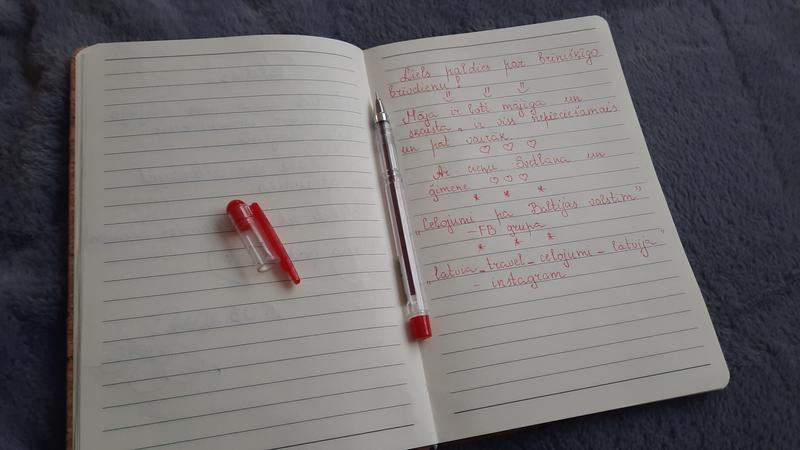 Liels paldies par brīnišķīgo
brīvdienu!
Māja ir ļoti mājīga un
skaista, ir viss nepieciešamais
un pat vairāk
Ar cieņu Svetlana un
ģimene
"Ceļojumi pa Baltijas valstīm"
- FB grupa
"latvia_travel_celojumi_latvija"
- instagram